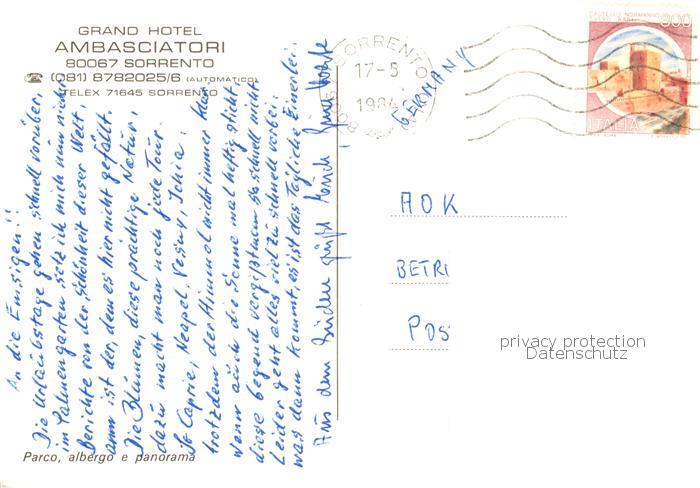 GRAND HOTEL
AMBASCIATORI
80067 SORRENTO
☎ (081) 8782025/6 (AUTOMATICO)
TELEX 71645 SORRENTO
An die Emsigen!!
Die Urlaubstage gehen schnell vorüber,
im Palmengarten setz ich mich nun nieder
Berichte von der Schönheit dieser Welt
arm ist der, dem es hier nicht gefällt.
Die Blumen, diese prächtige Natur,
dazu macht man noch jede Tour.
Ob Caprie, Neapel, Vesuv, Ischia.
trotzdem der Himmel nicht immer klar
wenn auch die Sonne mal heftig sticht,
diese Gegend vergißt man so schnell nicht
Leider geht alles viel zu schnell vorbei.
was dann kommt, es ist das Tägliche Einerlei.
Aus dem Süden grüßt
Parco, albergo e panorama
SORRENTO
17-5
1984
GERMANY
800
ITALIA
AOK
BETRI
POS
privacy protection
Datenschutz